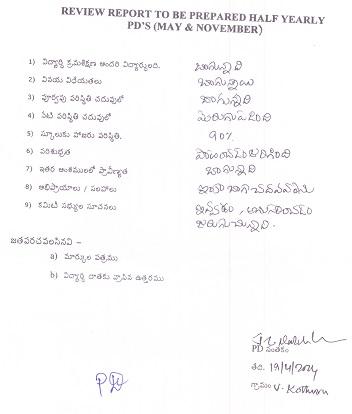 REVIEW REPORT TO BE PREPARED HALF YEARLY
PD'S (MAY & NOVEMBER)
1) విద్యార్థి క్రమశిక్షణ అందరి విద్యార్థులది. బాగున్నది
2) వినయ విధేయతలు బాగున్నాయి
3) పూర్వపు పరిస్థితి చదువులో బాగున్నది
4) నేటి పరిస్థితి చదువులో మెరుగుపడింది
5) స్కూలుకు హాజరు పరిస్థితి. 90%
6) పరిశుభ్రత
7) ఇతర అంశములలో ప్రావీణ్యత బాగున్నది
8) అభిప్రాయాలు / సలహాలు ఇంకా బాగా
9) కమిటీ సభ్యుల సూచనలు
జరుగుచున్నది.
జతపరచవలసినవి –
a) మార్కుల పత్రము
b) విద్యార్థి దాతకు వ్రాసిన ఉత్తరము
PD సంతకం
తేది. 19/4/2024
గ్రామం V. Kothuru
PD